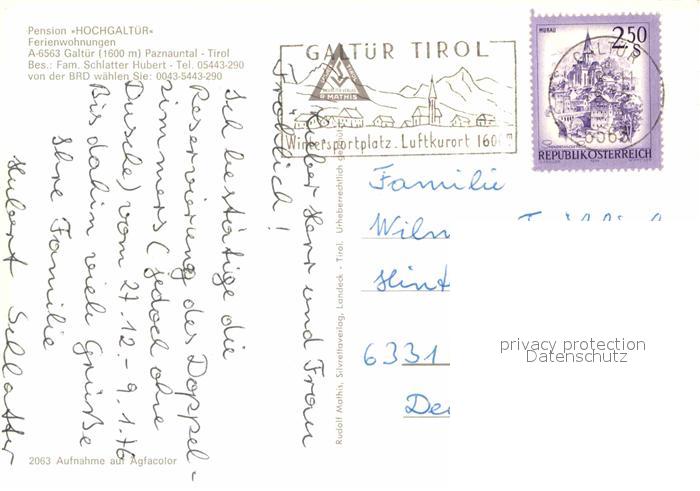 Pension »HOCHGALTÜR«
Ferienwohnungen
A-6563 Galtür (1600 m) Paznauntal - Tirol
Bes.: Fam. Schlatter Hubert - Tel. 05443-290
von der BRD wählen Sie: 0043-5443-290
Lieber Herr und Frau
Fröhlich!
Ich bestätige die
Reservierung des Doppel-
zimmers (jedoch ohne
Dusche) vom 27.12.-9.1.76
Bis dahin viele Grüße
Ihre Familie
Hubert Schlatter
2063 Aufnahme auf Agfacolor
Rudolf Mathis, Silvrettaverlag, Landeck - Tirol. Urheberrechtlich
GALTÜR TIROL
R MATHIS
Wintersportplatz. Luftkurort 1600 m
GALTÜR
6563
MURAU
2.50
S
REPUBLIK ÖSTERREICH
Familie
Wilh
Hint
6331
De
privacy protection
Datenschutz